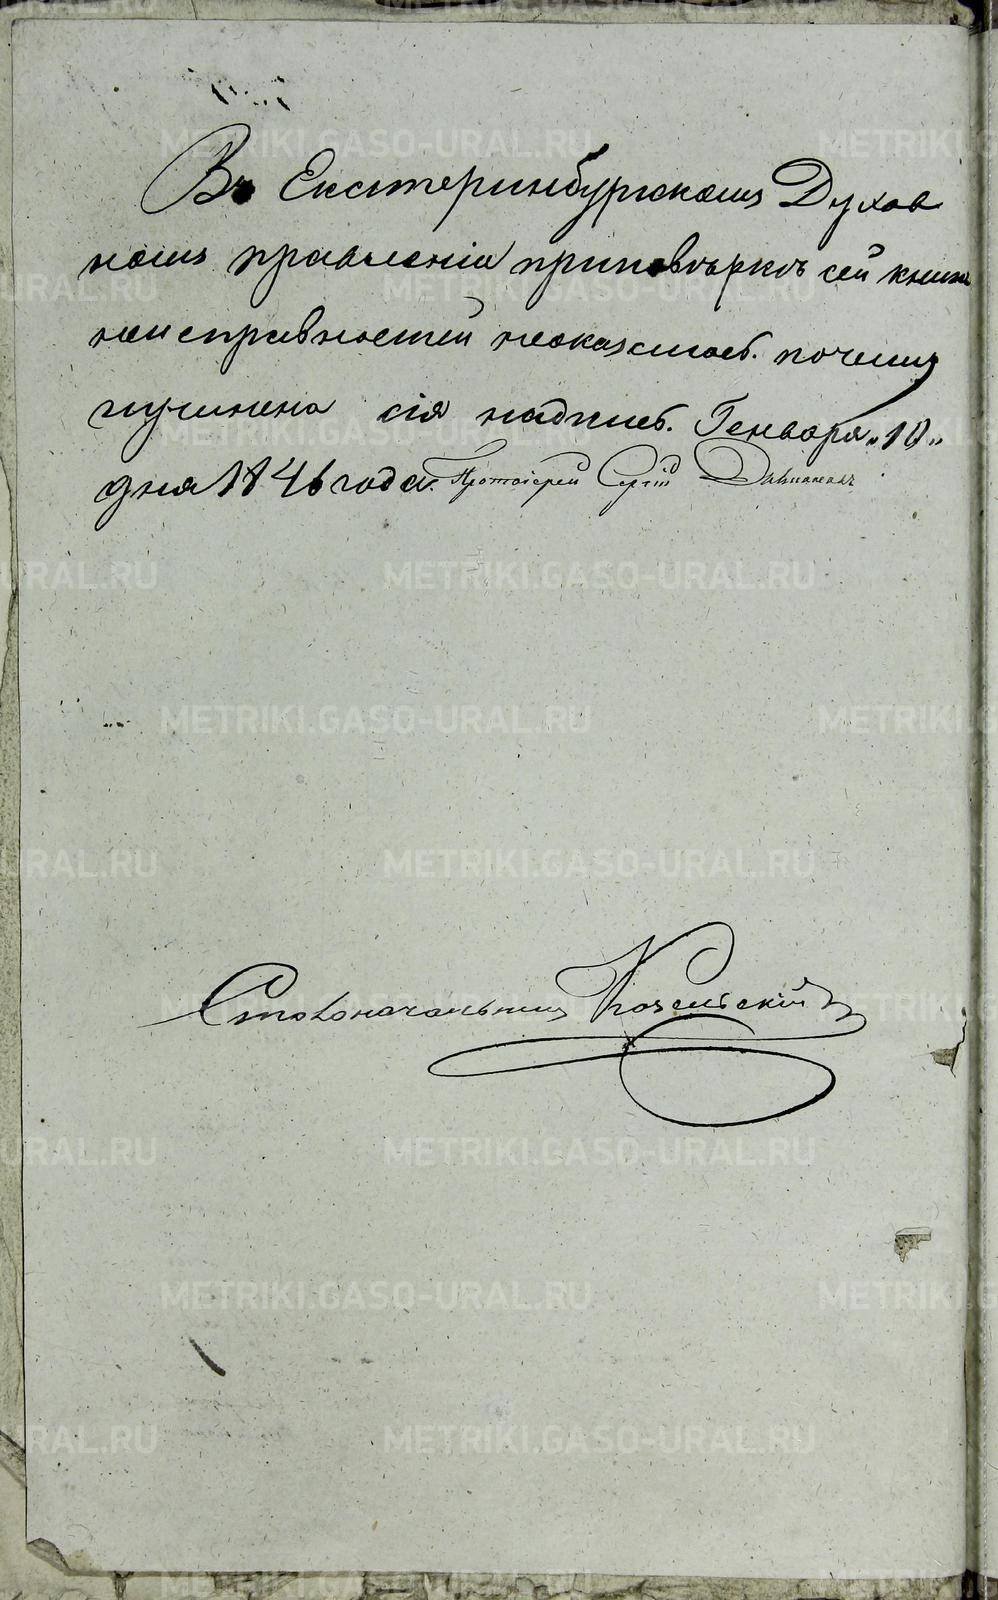 Въ Екатеринбургскомъ Духов
номъ правленіи приповѣркѣ сей книги
неисправностей неоказалось. почему
иучинена сія надпись. Генваря „10„
дня 1846 года. Протоіерей Сергій
Столоначальникъ